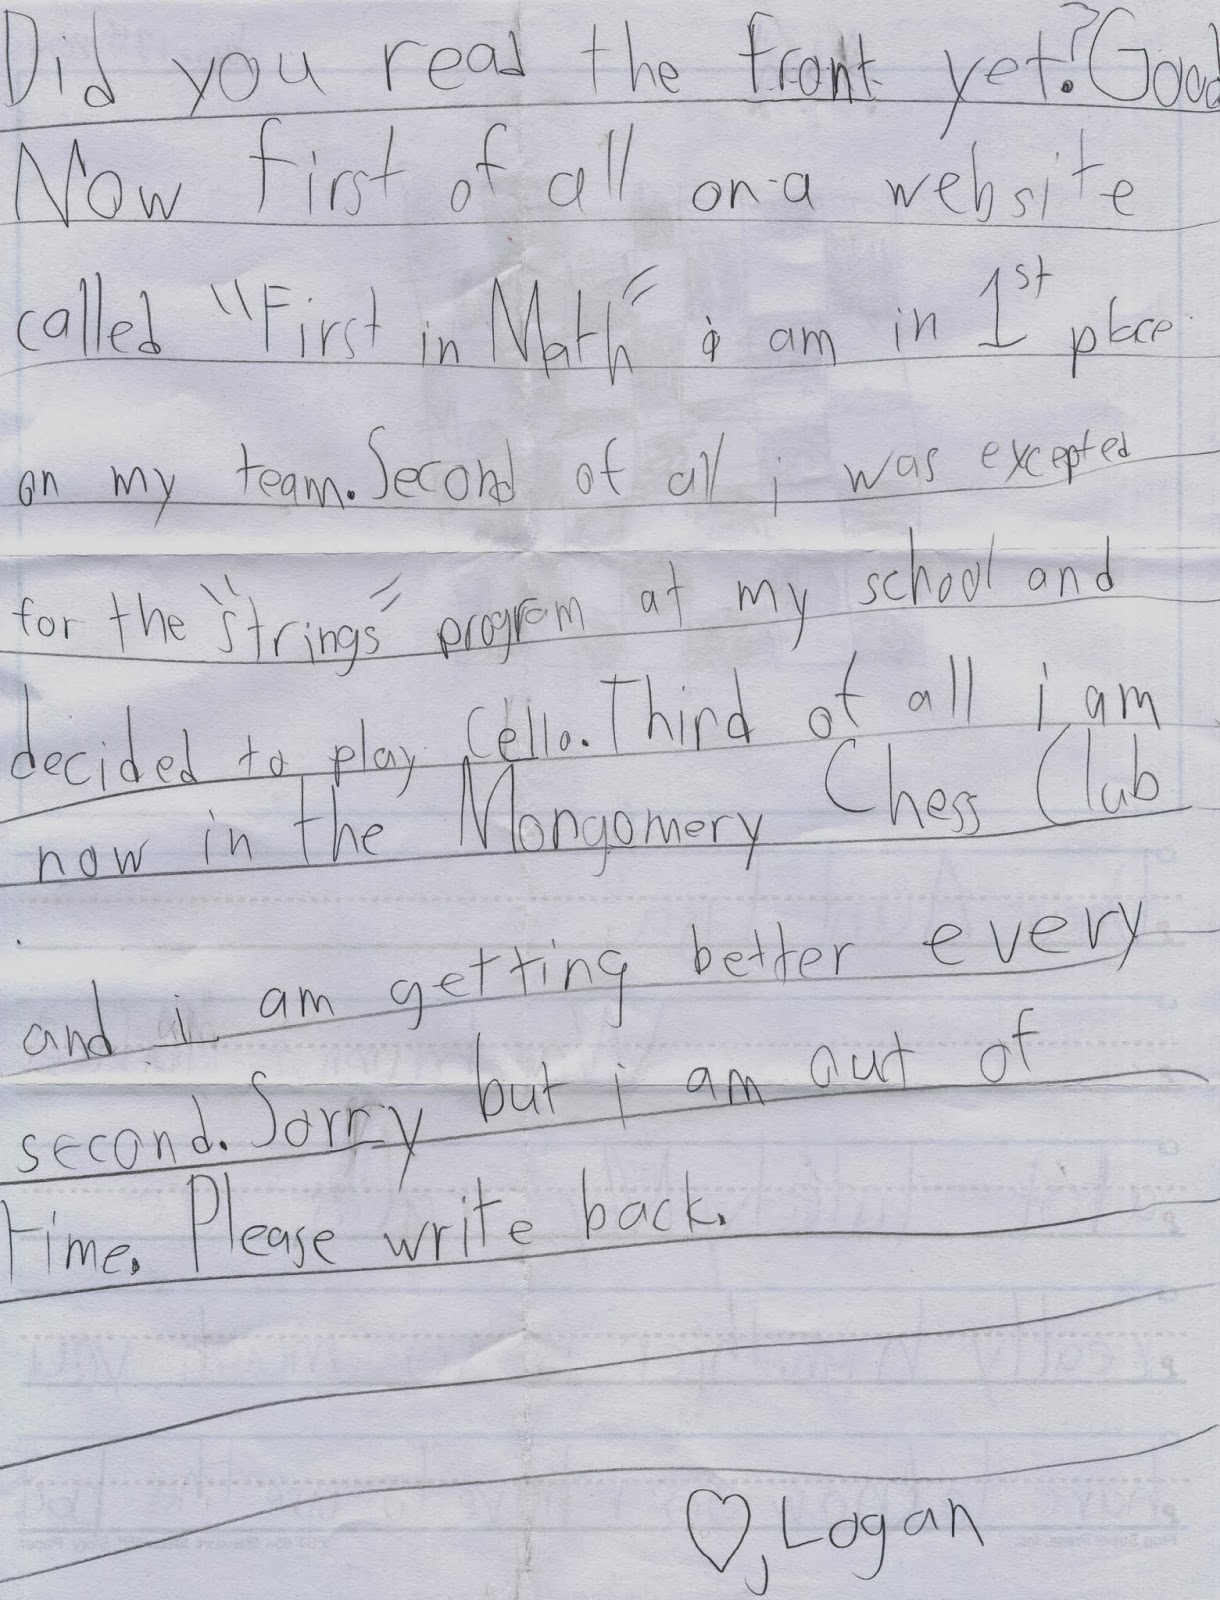 Did you read the front yet? Good
Now first of all on a website
called "First in Math" i am in 1st place
on my team. Second of all i was excepted
for the "strings" program at my school and
decided to play Cello. Third of all i am
now in the Mongomery Chess Club
and i am getting better every
second. Sorry but i am out of
time. Please write back.
♡, Logan